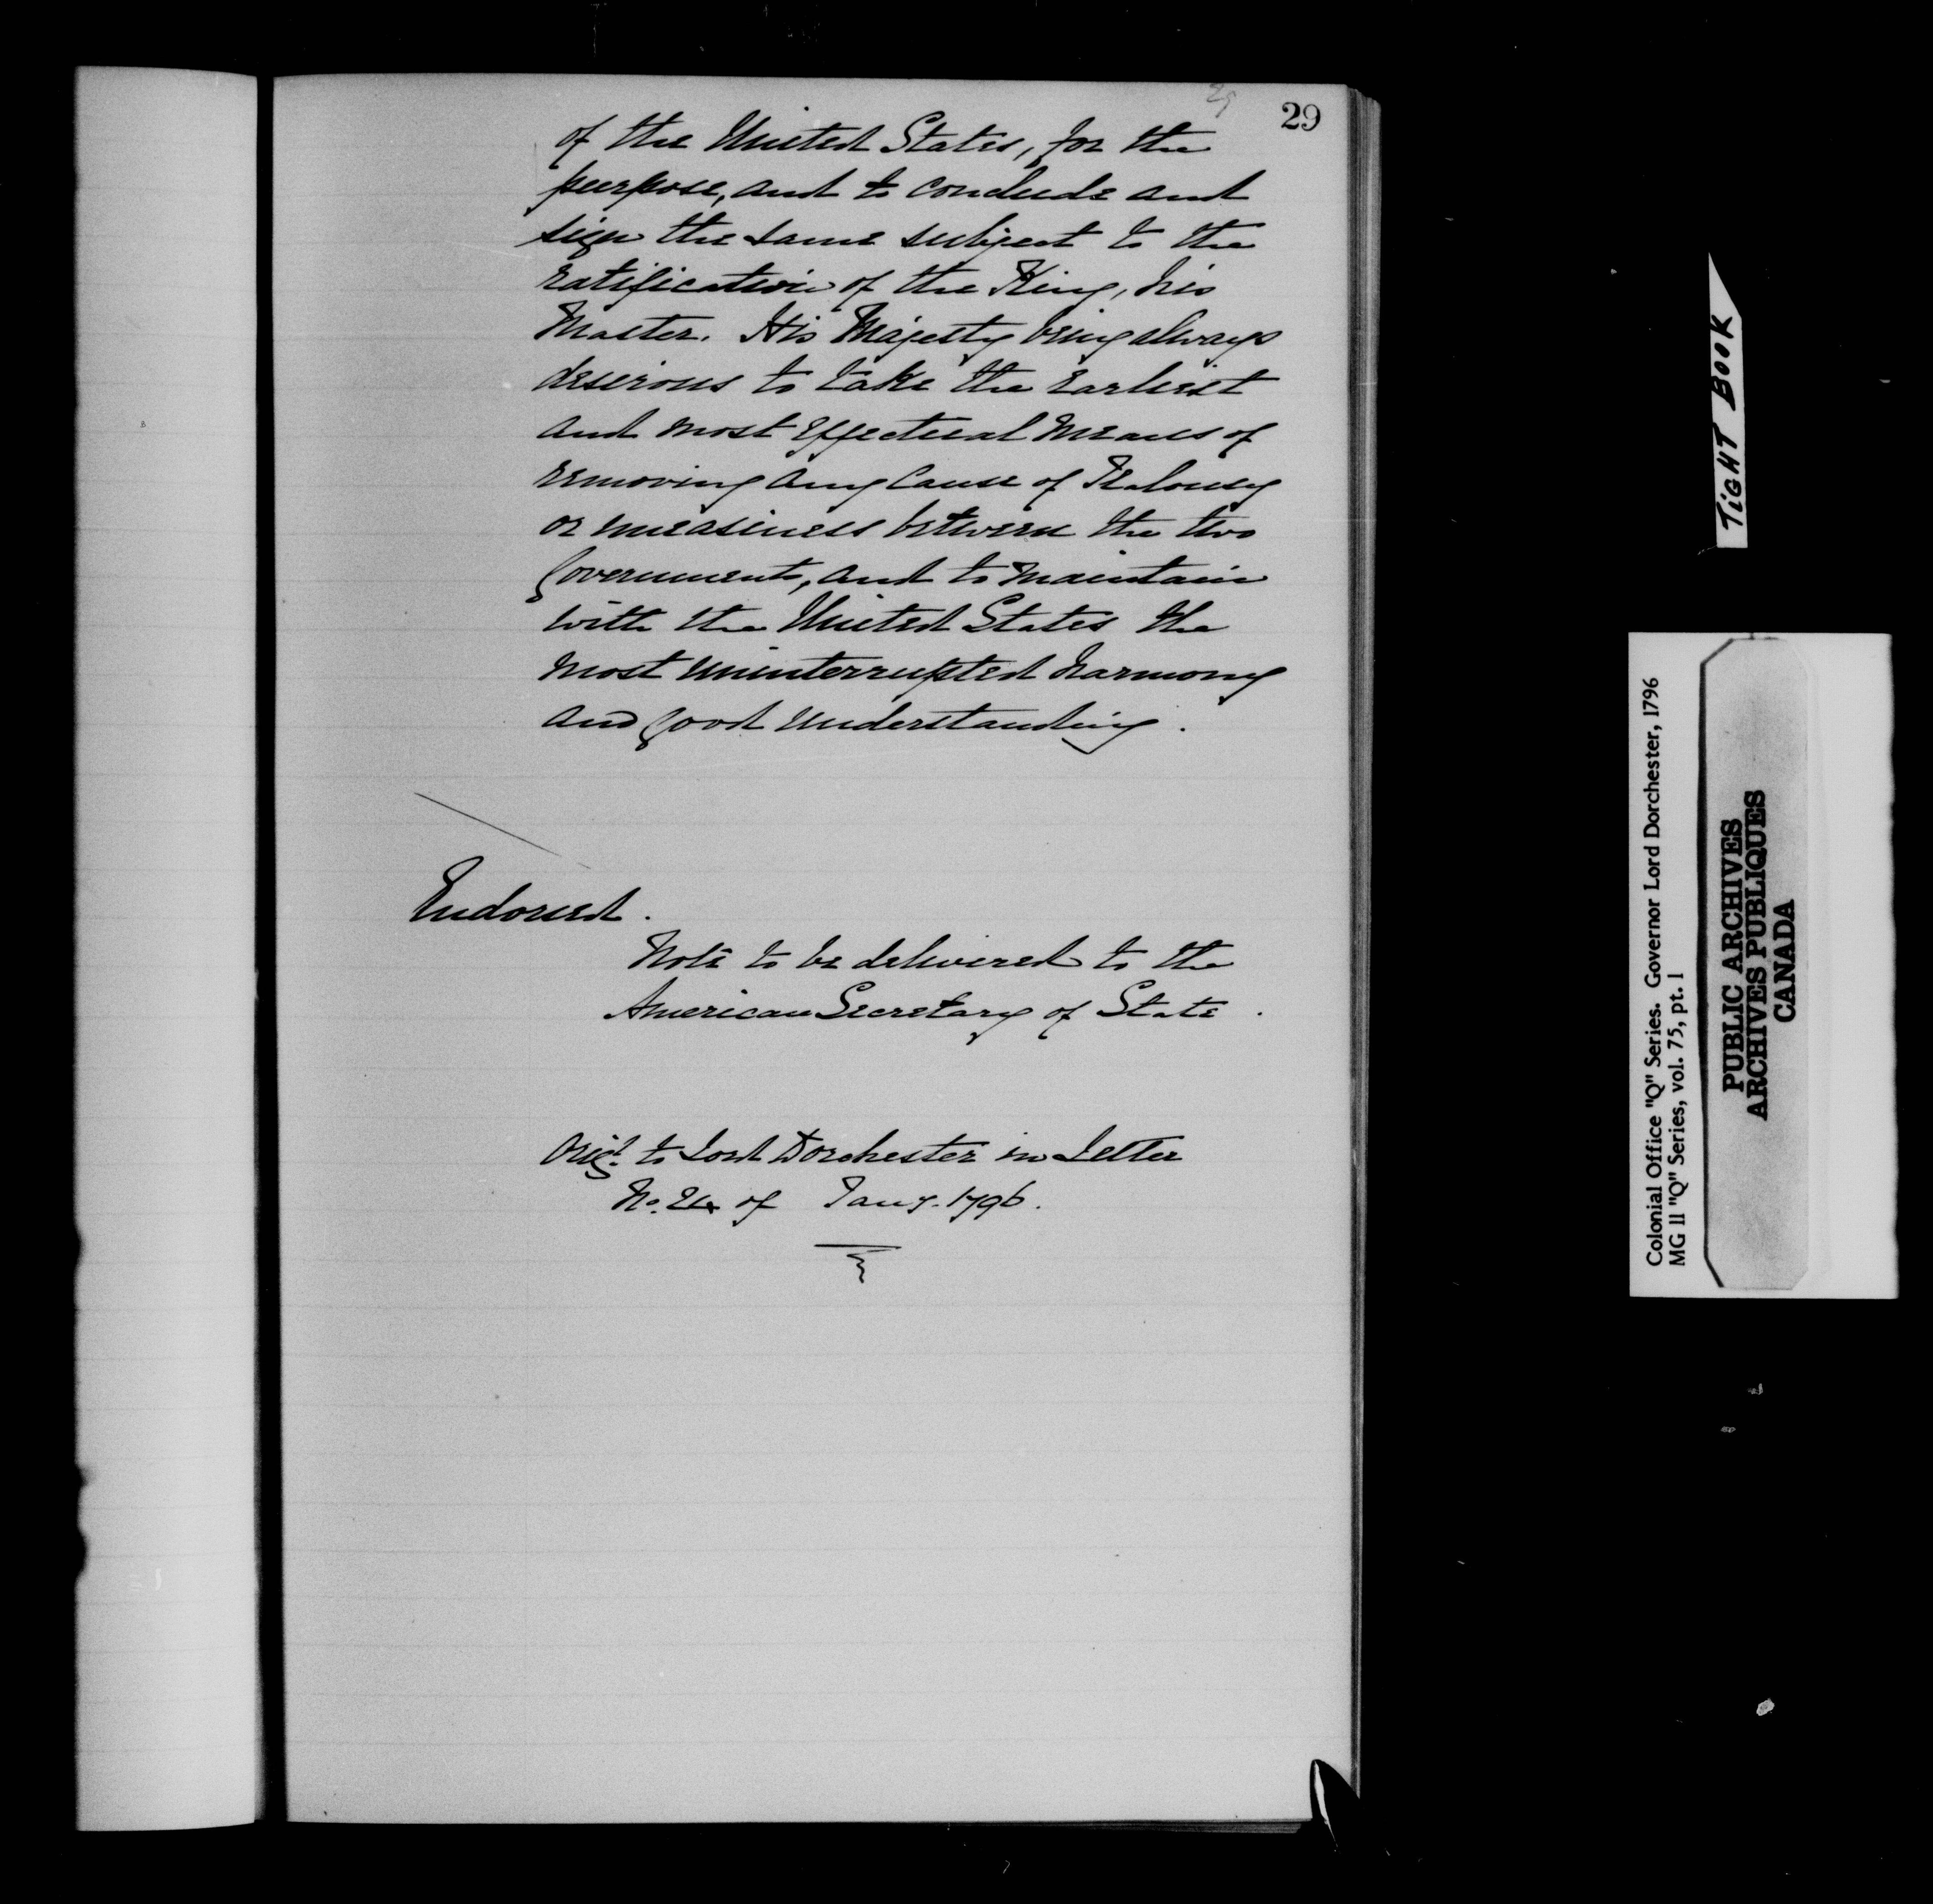 29
of the United States, for the
purpose, and to conclude and
sign the same subject to the
ratification of the King, his
Master. His Majesty being always
desirous to take the earliest
and most effectual means of
removing any cause of Jealousy
or uneasiness between the two
Governments, and to maintain
with the United States the
most uninterrupted harmony
and good understanding.
Endorsed.
Note to be delivered to the
American Secretary of State.
Origl. to Lord Dorchester in Letter
No. of Jany. 1796.
TiGHT BOOK
Colonial Office "Q" Series. Governor Lord Dorchester, 1796
MG 11 "Q" Series, vol. 75, pt. 1
PUBLIC ARCHIVES
ARCHIVES PUBLIQUES
CANADA